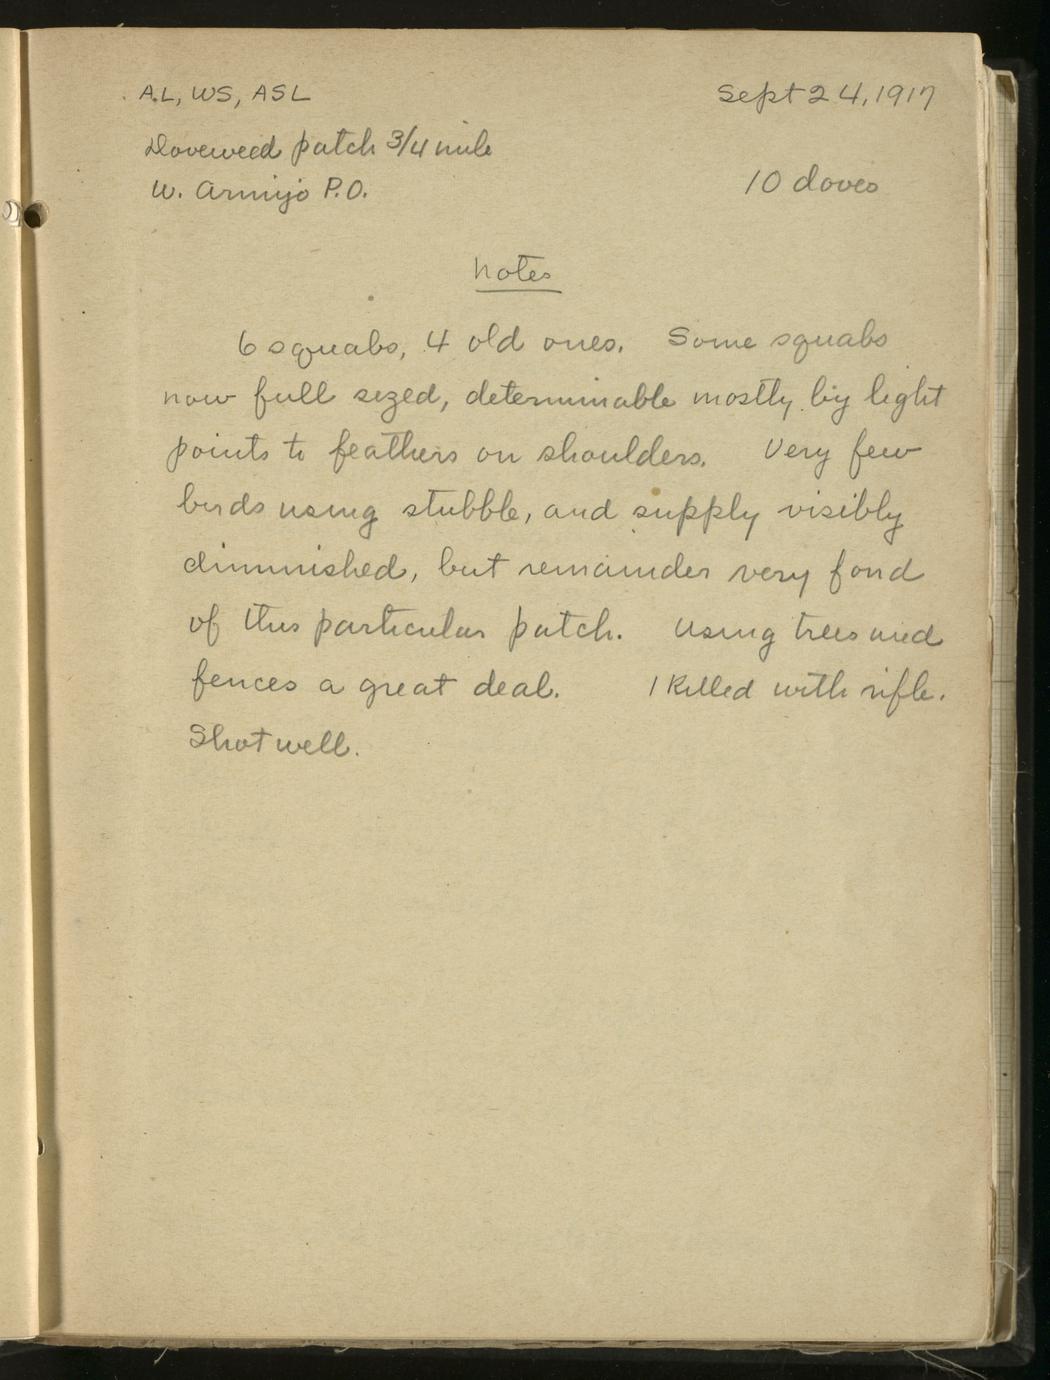 A.L, WS, ASL
Sept 24, 1917
Doveweed patch 3/4 mile
W. Armijo P.O.
10 doves
Notes
6 squabs, 4 old ones. Some squabs
now full sized, determinable mostly by light
points to feathers on shoulders. Very few
birds using stubble, and supply visibly
diminished, but remainder very fond
of this particular patch. Using trees and
fences a great deal. 1 killed with rifle.
Shot well.